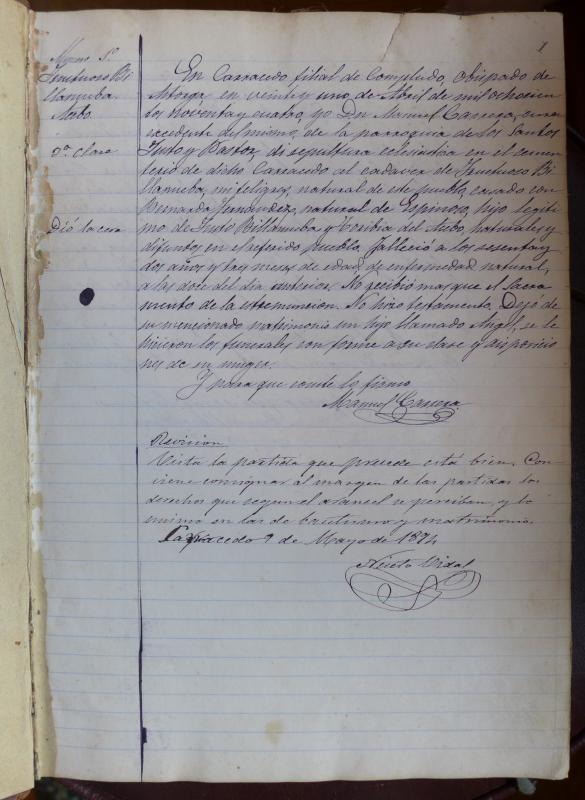 1
Numo 1º
Fructuoso Bi
llanueba
Nerbo
2ª Clase
Dió la cera
En Carracedo filial de Compludo, obispado de
Astorga en veinte y uno de Abril de mil ochocien
tos noventa y cuatro, yo Dn Manuel Carrera, cura
del mismo, de la parroquia de los Santos
Justo y Pastor, di sepultura eclesiástica en el cemen
terio de dicho Carracedo al cadaver de Fructuoso Bi
llanueba, mi feligres, natural de este pueblo, casado con
Bernarda Fernandez, natural de Espinoso, hijo legiti
mo de Justo Billanueba y Toribia del naturales y
difuntos en el referido pueblo. Falleció a los sesenta y
dos años y tres meses de edad, de enfermedad natural,
a las doce del dia anterior. No recibió mas que el Sacra
mento de la estremuncion. No hizo testamento. Dejó de
su mencionado matrimonio un hijo llamado Angel, se le
hicieron los funerales conforme a su clase y disposicio
nes de su muger.
Y para que conste lo firmo
Manuel Carrera
Revision
Vista la partida que precede está bien. Con
viene consignar al margen de las partidas los
derechos que segun el arancel se perciban, y lo
mismo en las de bautismo y matrimonio.
Carracedo 9 de Mayo de 1894
Vidal